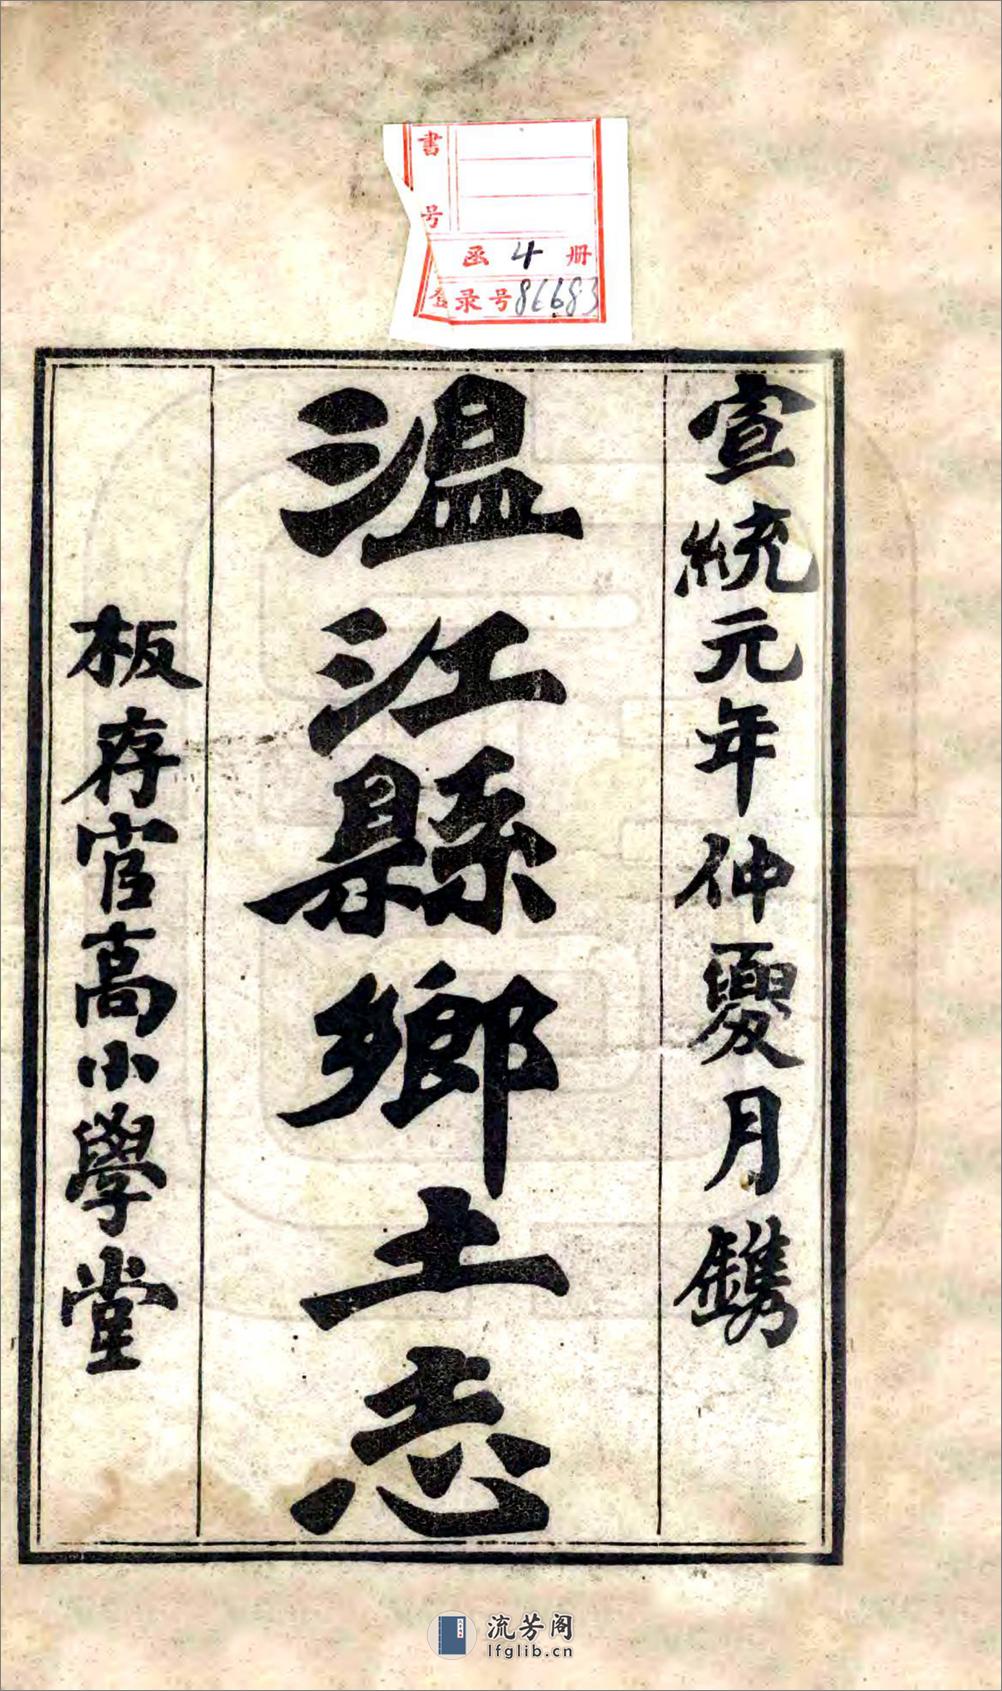 書号
函 4 册
登录号 86683
宣統元年仲夏月鐫
温江縣鄉土志
板存官高小學堂
流芳阁
lfglib.cn